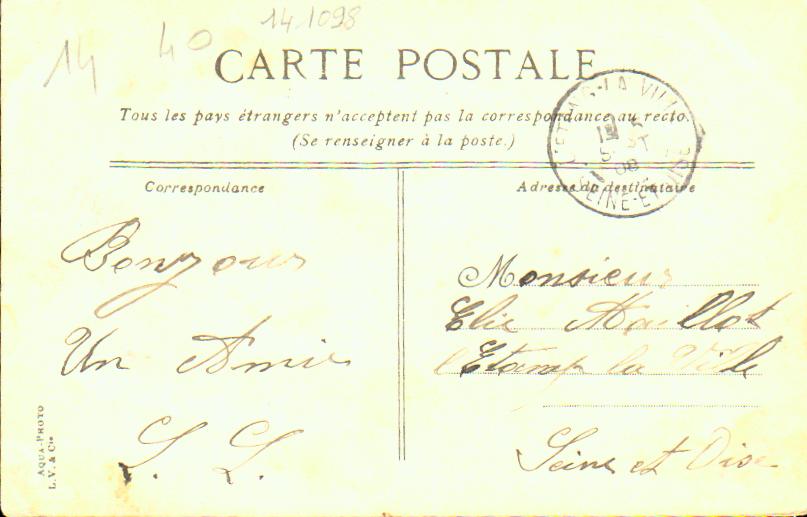 14 40 14 1098
CARTE POSTALE
Tous les pays étrangers n'acceptent pas la correspondance au recto.
(Se renseigner à la poste.)
Correspondance
Adresse du destinataire
Bonjour
Un Amie
L. L.
Monsieur
Elie Maillot
l'Etamp la Ville
Seine et Oise
LA VILLE
SEINE-ET-OISE
AQUA-PHOTO
L. V. & Cie